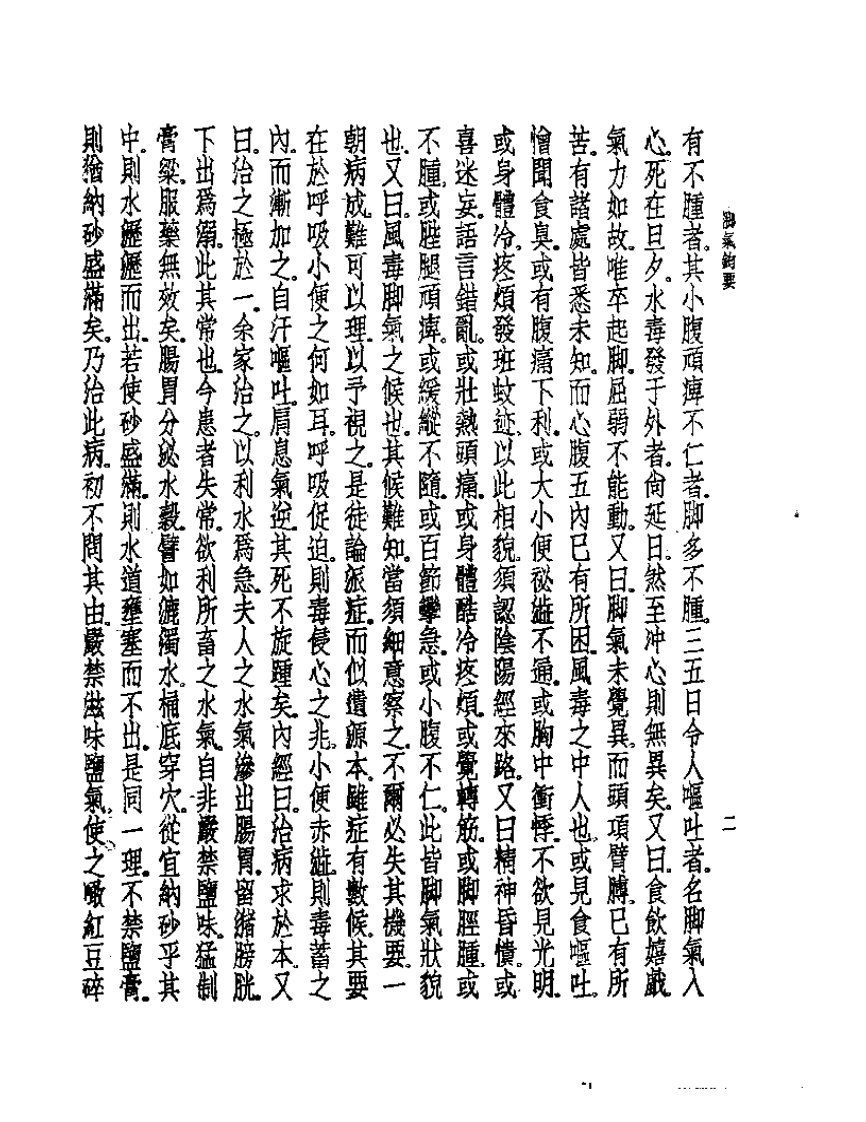 脚氣鈎要
二
有不腫者。其小腹頑痺不仁者。脚多不腫。三五日令人嘔吐者。名脚氣入
心。死在旦夕。水毒發于外者。尙延日。然至冲心則無異矣。又曰。食飮嬉戲。
氣力如故。唯卒起脚。屈弱不能動。又曰。脚氣未覺異。而頭項臂膊。已有所
苦。有諸處皆悉未知。而心腹五內已有所困。風毒之中人也。或見食嘔吐。
憎聞食臭。或有腹痛下利。或大小便祕澁不通。或胸中衝悸。不欲見光明。
或身體冷疼煩發班蚊迹。以此相貌。須認陰陽經來路。又曰精神昏憒。或
喜迷妄。語言錯亂。或壯熱頭痛。或身體酷冷疼煩。或覺轉筋。或脚脛腫。或
不腫。或䏶腿頑痺。或緩縱不隨。或百節攣急。或小腹不仁。此皆脚氣狀貌
也。又曰。風毒脚氣之候也。其候難知。當須細意察之。不爾必失其機要。一
朝病成。難可以理。以予視之。是徒論派症。而似遺源本。雖症有數候。其要
在於呼吸小便之何如耳。呼吸促迫。則毒侵心之兆。小便赤澁。則毒蓄之
內。而漸加之。自汗嘔吐。肩息氣逆。其死不旋踵矣。內經曰。治病求於本。又
曰。治之極於一。余家治之。以利水爲急。夫人之水氣。滲出腸胃。留豬膀胱。
下出爲溺。此其常也。今患者失常。欲利所畜之水氣。自非嚴禁鹽味。猛制
膏粱。服藥無效矣。腸胃分泌水穀。譬如漉濁水。桶底穿穴。從宜納砂乎其
中。則水瀝瀝而出。若使砂盛滿。則水道壅塞而不出。是同一理。不禁鹽膏。
則猶納砂盛滿矣。乃治此病。初不問其由。嚴禁滋味鹽氣。使之啖紅豆碎